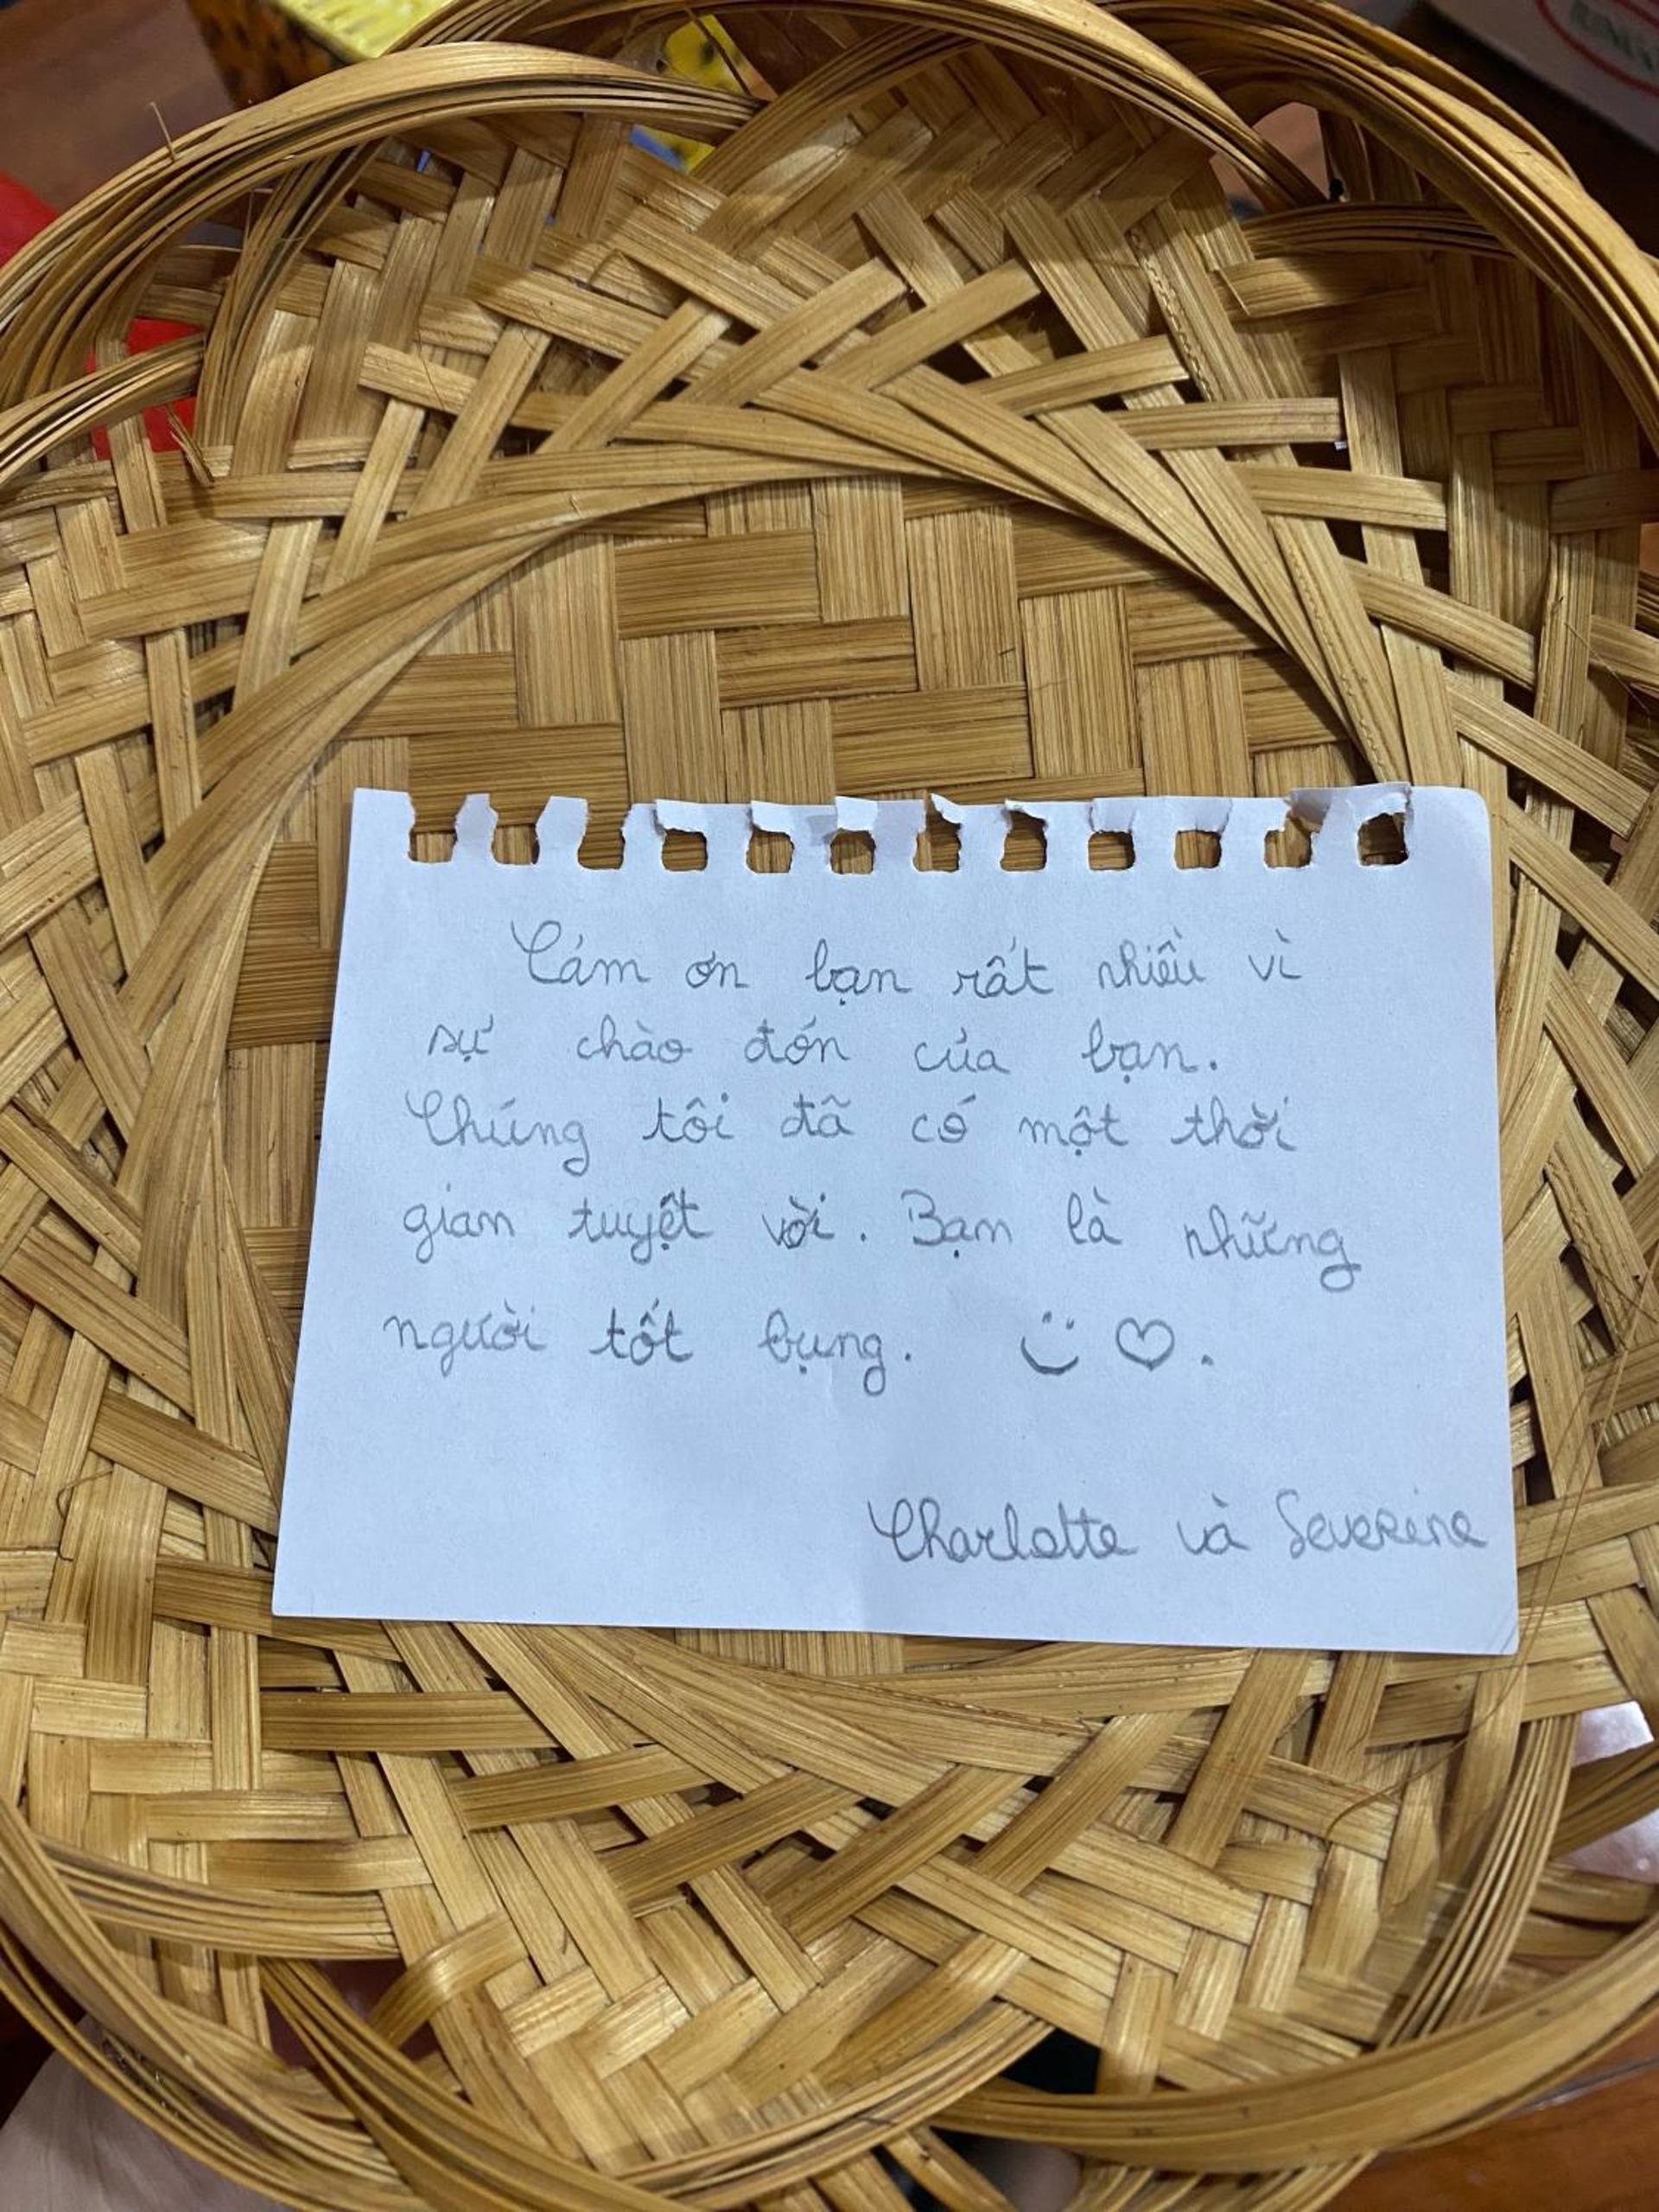 Cám ơn bạn rất nhiều vì
sự chào đón của bạn.
Chúng tôi đã có một thời
gian tuyệt vời. Bạn là những
người tốt bụng. ☺ ♡.
Charlotte và Severine